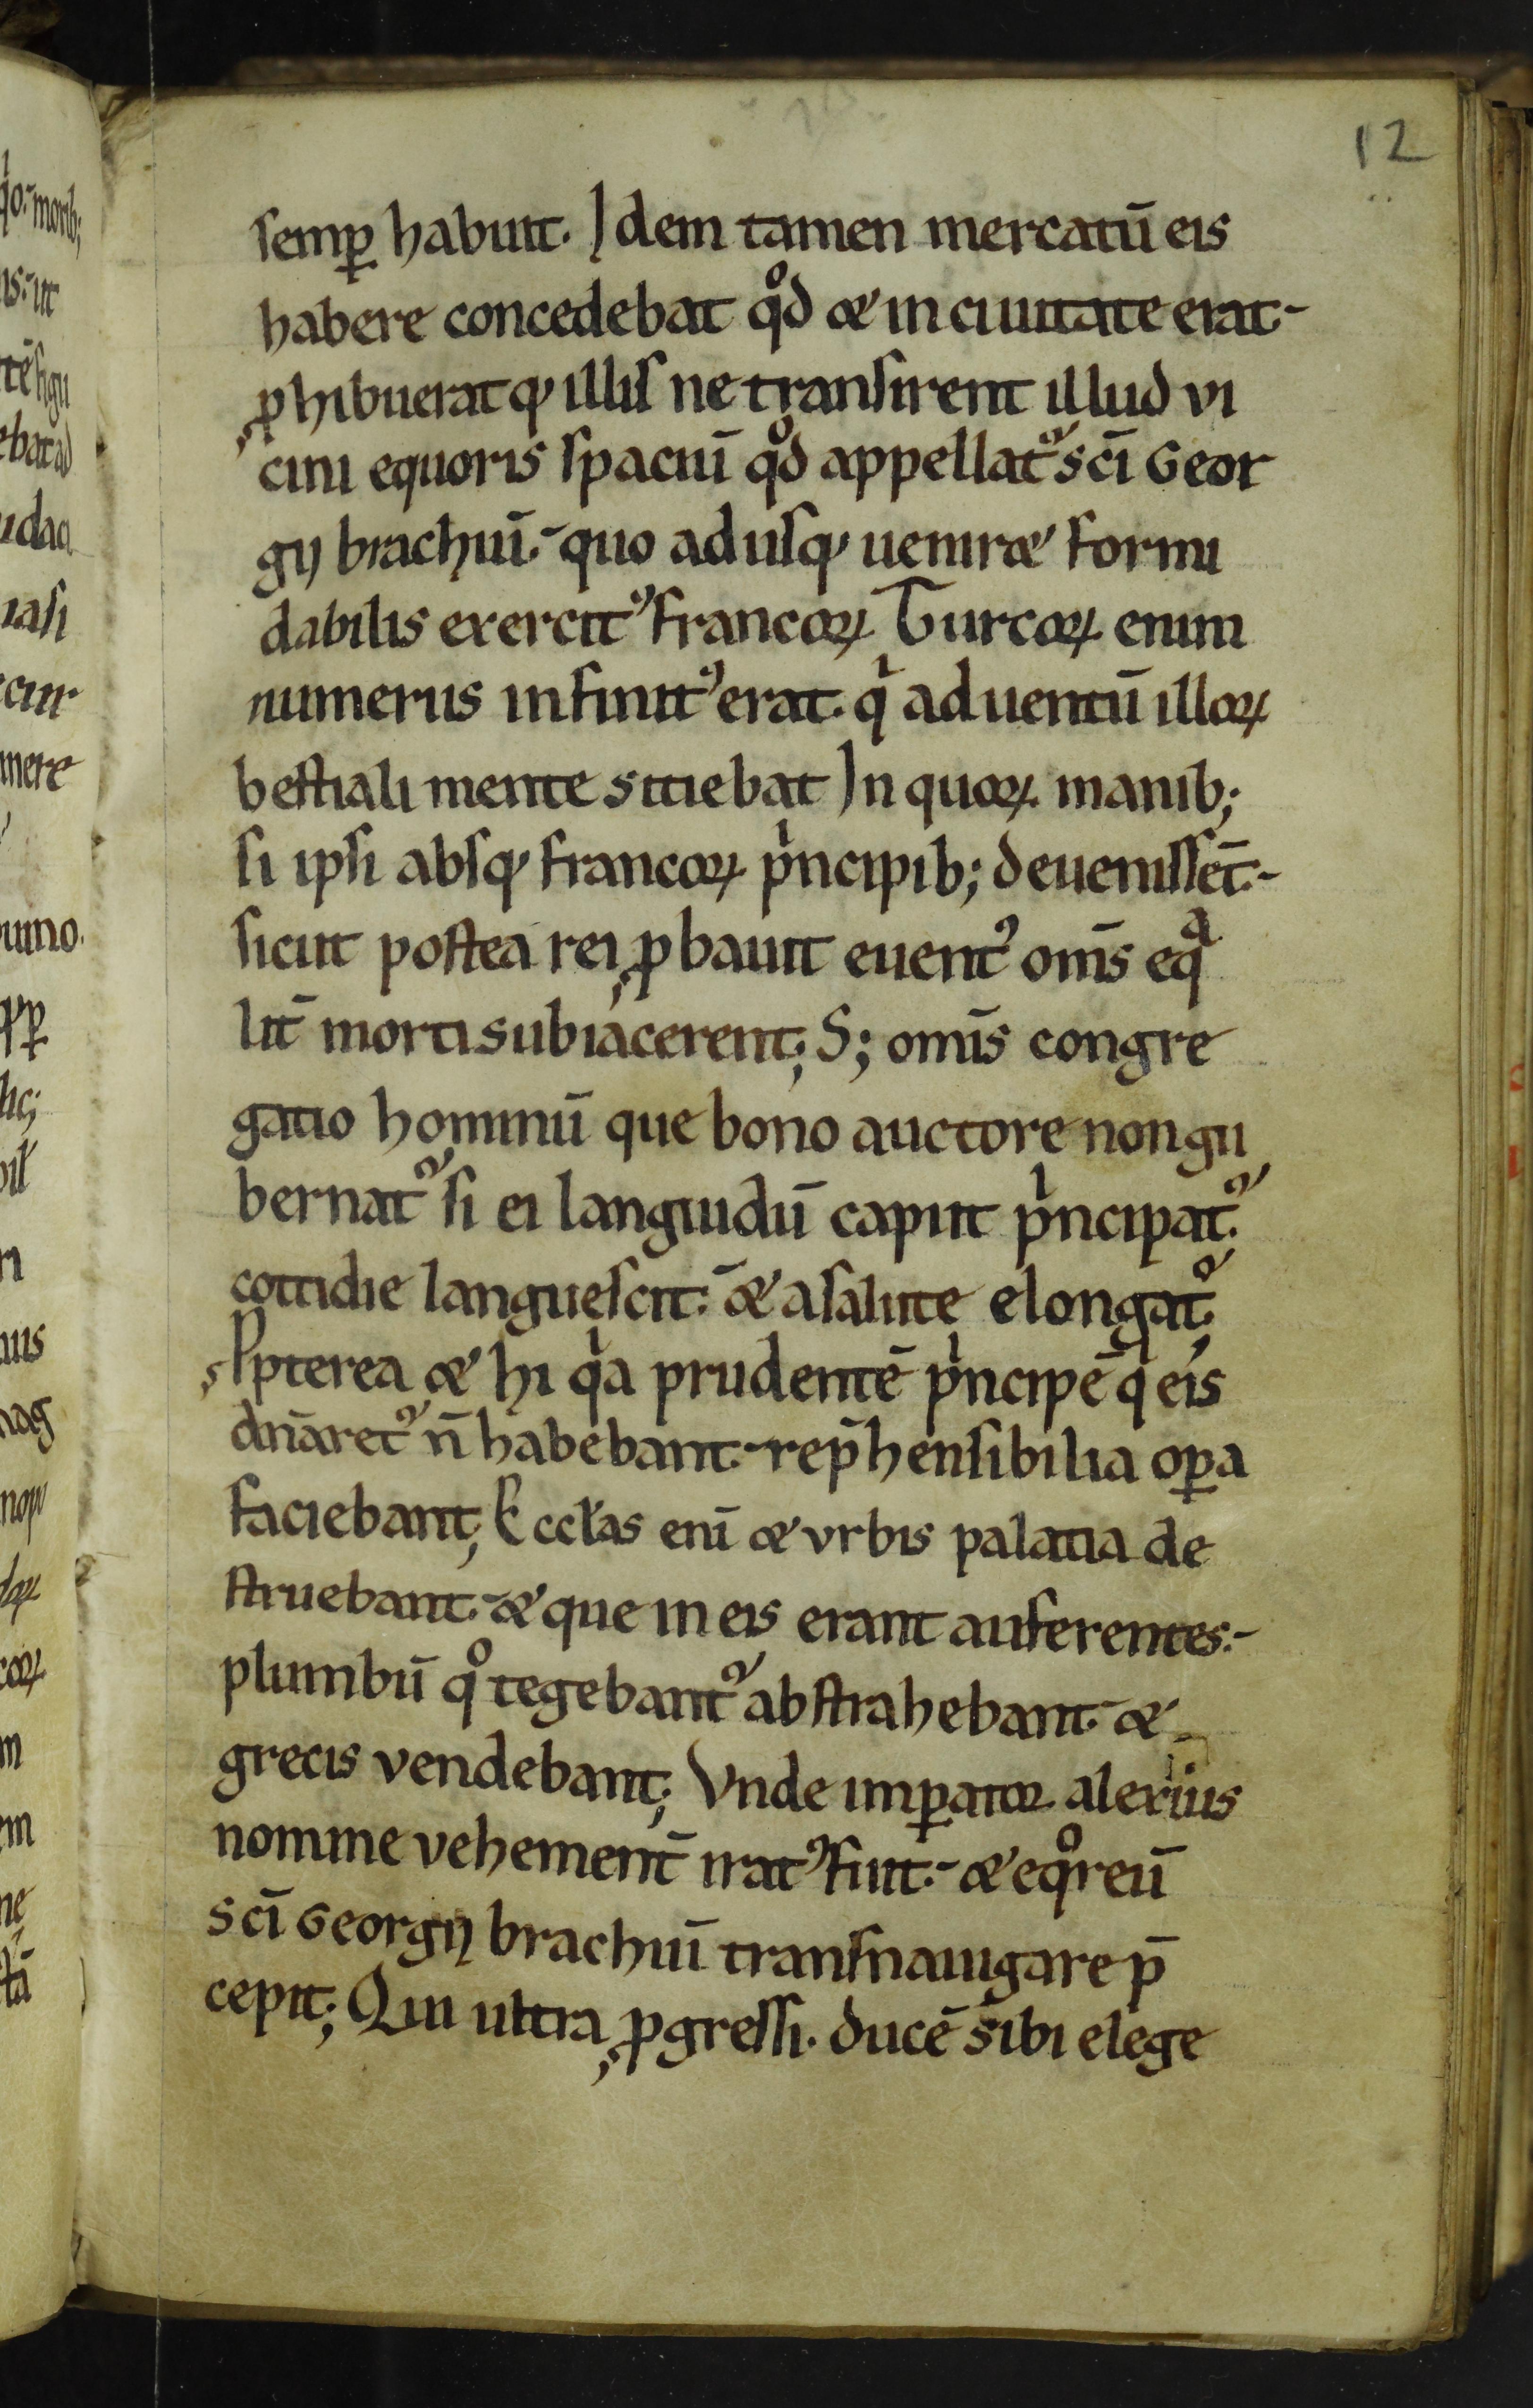 12
semꝑ habuit. Idem tamen mercatū eis
habere concedebat qͦd & in ciuitate erat.
ꝓhibueratqꝫ illis ne transirent illud vi
cini equoris spaciū qͦd appellatᷣ sc̄i Geor
gij brachiū. quo adusqꝫ uenir& formi
dabilis exercitꝰ francoꝝ Turcoꝝ enim
numerus infinitꝰ erat. qͥ aduentū illoꝝ
bestiali mente sitiebat In quoꝝ manib;
si ipsi absqꝫ francoꝝ pͥncipib; deuenissēt.
sicut postea rei ꝓbauit euentꝰ om̄s eqᷓ
lit̄ morti subiacerent; S; om̄is congre
gatio hominū que bono auctore non gu
bernatᷣ si ei languidū caput pͥncipatᷣ.
cottidie languescit. & a salute elongatᷣ;
Ꝓpterea & hi qͥa prudentē pͥncipē qͥ eis
dn̄aretᷣ n̄ habebant. rep̄hensibilia oꝑa
faciebant; Eccl̄as enī & vrbis palatia de
struebant. & que in eis erant auferentes.
plumbū qͦ tegebantᷣ abstrahebant. &
grecis vendebant; Vnde imꝑator alexius
nomine vehement̄ iratꝰ fuit. & eqͦreū
sc̄i Georgij brachiū transnauigare p̄
cepit; Qui ultra ꝓgressi. ducē sibi elege